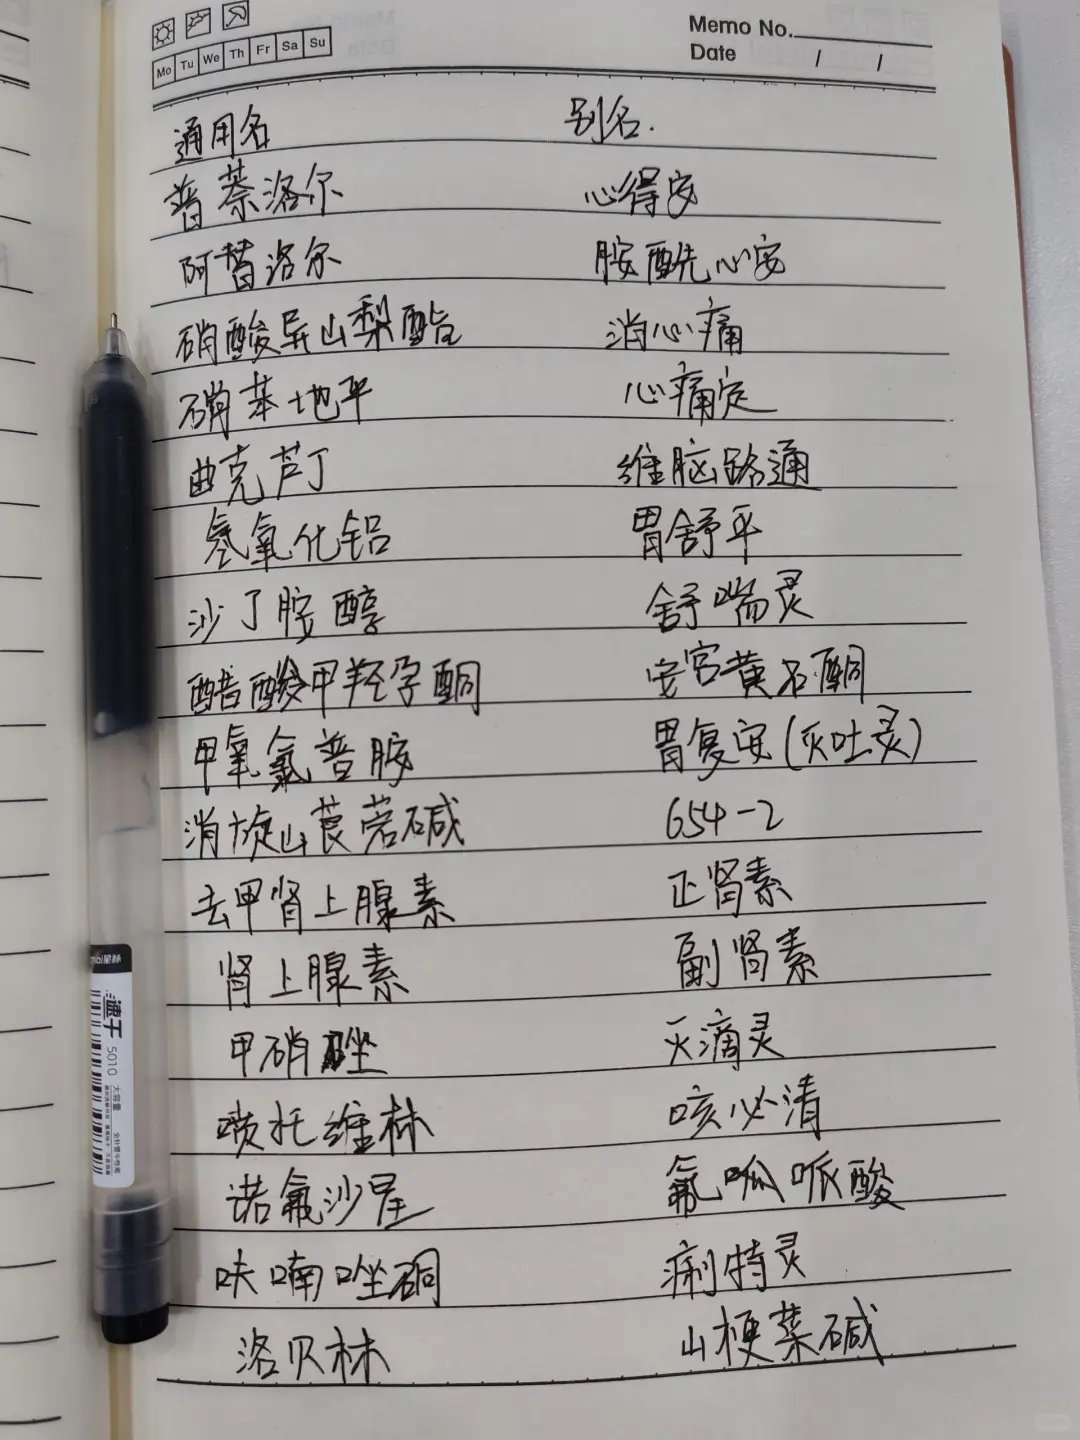 Memo No.
Mo Tu We Th Fr Sa Su
Date / /
通用名 别名.
普萘洛尔 心得安
阿替洛尔 胺酰心安
硝酸异山梨酯 消心痛
硝苯地平 心痛定
曲克芦丁 维脑路通
氢氧化铝 胃舒平
沙丁胺醇 舒喘灵
醋酸甲羟孕酮 安宫黄名酮
甲氧氯普胺 胃复安(灭吐灵)
消旋山莨菪碱 654-2
去甲肾上腺素 正肾素
肾上腺素 副肾素
甲硝唑 灭滴灵
喷托维林 咳必清
诺氟沙星 氟呱哌酸
呋喃唑酮 痢特灵
洛贝林 山梗菜碱
速干 5010 大容量